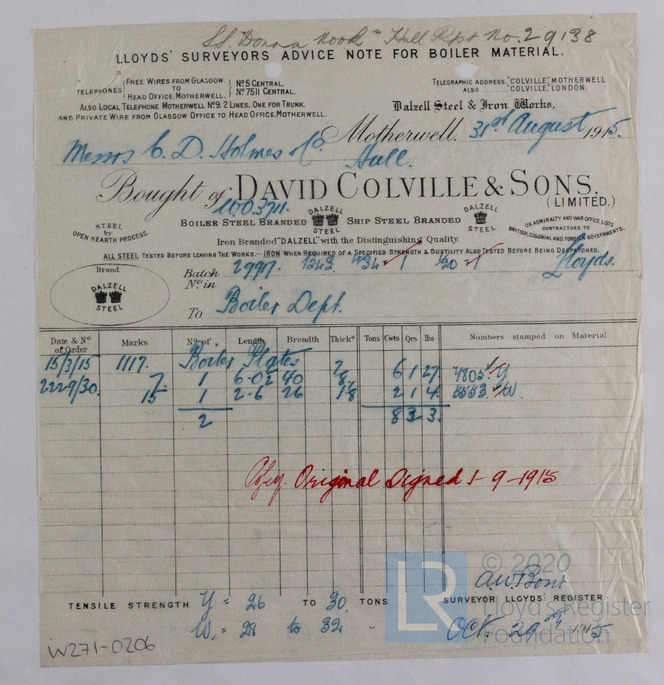 SS Donna Nook Hull Rpt No. 29138
LLOYDS' SURVEYORS ADVICE NOTE FOR BOILER MATERIAL.
TELEPHONES { FREE WIRES FROM GLASGOW TO HEAD OFFICE, MOTHERWELL. } Nº 5 CENTRAL. Nº 7511 CENTRAL.
ALSO LOCAL TELEPHONE MOTHERWELL Nº 9. 2 LINES, ONE FOR TRUNK.
AND PRIVATE WIRE FROM GLASGOW OFFICE TO HEAD OFFICE, MOTHERWELL.
TELEGRAPHIC ADDRESS, "COLVILLE", MOTHERWELL
ALSO "COLVILLE", LONDON.
Dalzell Steel & Iron Works.
Motherwell. 31st August 1915.
Messrs C. D. Holmes & Co Hull.
Bought of DAVID COLVILLE & SONS, (LIMITED.)
STEEL by OPEN HEARTH PROCESS.
BOILER STEEL BRANDED DALZELL STEEL SHIP STEEL BRANDED DALZELL STEEL
ON ADMIRALTY AND WAR OFFICE LISTS
CONTRACTORS TO
BRITISH, COLONIAL AND FOREIGN GOVERNMENTS.
Iron Branded "DALZELL" with the Distinguishing Quality.
ALL STEEL TESTED BEFORE LEAVING THE WORKS.—IRON WHEN REQUIRED OF A SPECIFIED STRENGTH & DUCTILITY ALSO TESTED BEFORE BEING DESPATCHED.
Brand
DALZELL STEEL
Batch Nº in 2997. Lloyds.
To Boiler Dept.
Date & Nº of Order Marks Nº of Length Breadth Thickº Tons Cwts Qrs lbs Numbers stamped on Material
Boiler Plates
15/3/15 1117. 7 1 6-0½ 40 7/8 6 1 27 4805 Y
2229/30. 15 1 2-6 26 2 1 4
2 8 3 3.
Copy. Original Signed 1-9-1915
© 2020
Lloyd's Register
Foundation
LR
A.W. Bond
TENSILE STRENGTH Y = 26 TO 30 TONS SURVEYOR LLOYDS' REGISTER
W. = 28 to 32 " Oct. 29th 1915
W271-0206